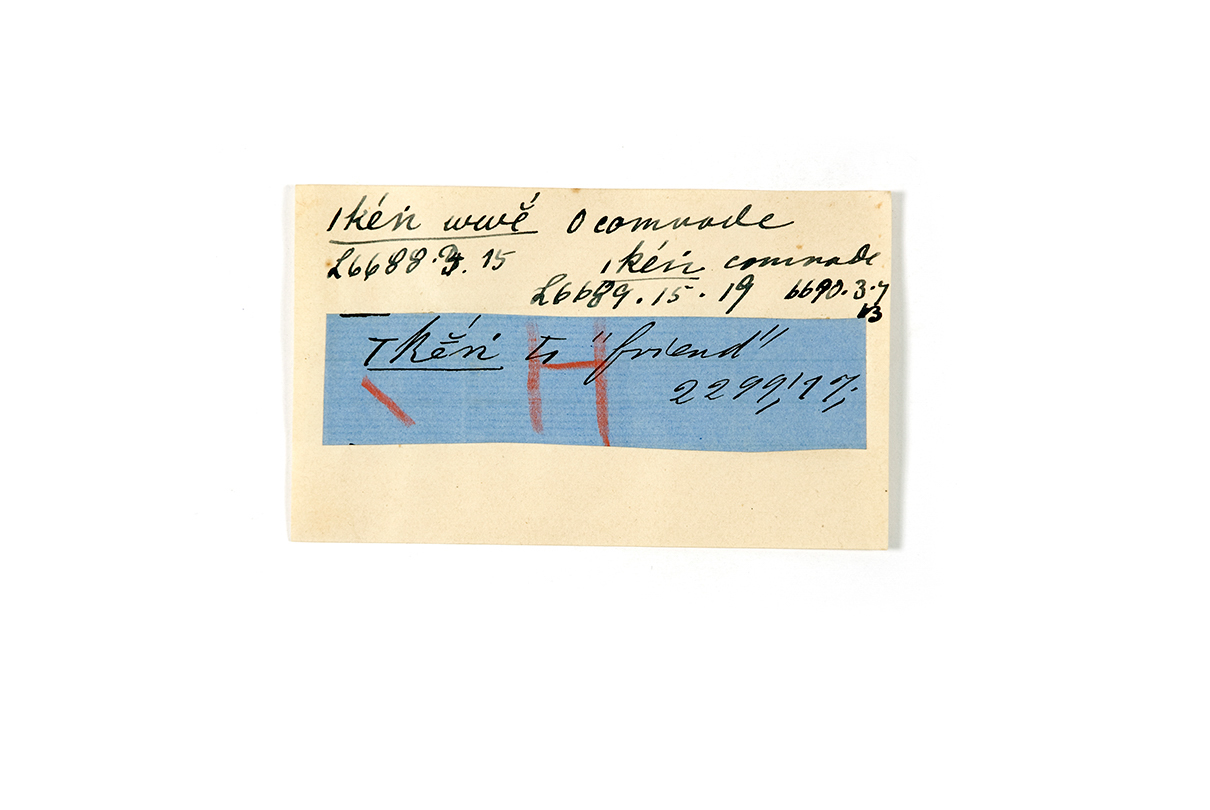 ǀkéń wwé̆ O comrade
L6688.3.15
ǀkéń comrade
L6689.15.19 6690.3.7
13
ǀkĕ́ń to "friend"
H
2299,'17,.